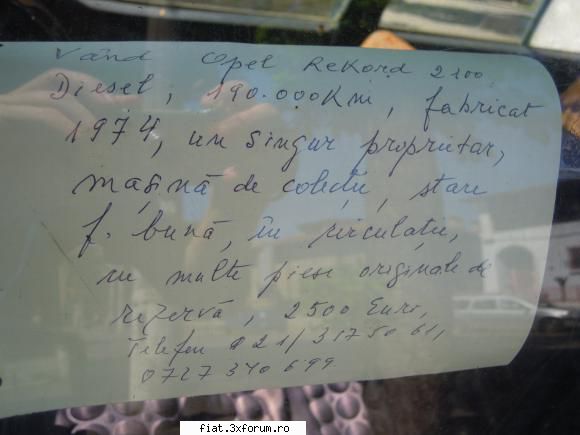 Vând Opel Rekord 2100
Diesel, 190.000Km, fabricat
1974, un singur proprietar,
mașină de colecție, stare
f. bună, în circulație,
cu multe piese originale de
rezervă, 2500 Euro,
Telefon 021/3175061,
0727 340 699
fiat.3xforum.ro